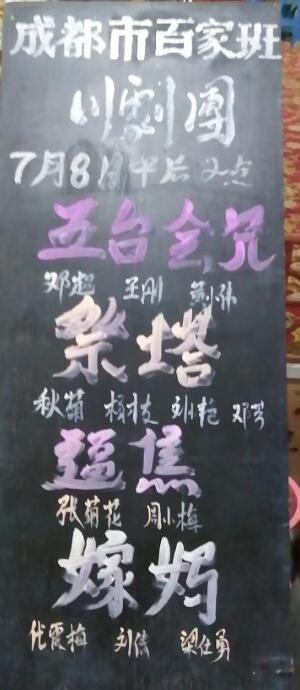 成都市百家班
川劇團
7月8日午后2点
五台会兄
邓超 王刚 刘伟
祭塔
秋菊 楊枝 刘艳 邓芳
逼焦
张菊花 周小梅
嫁妈
代霞梅 刘伟 梁仕勇